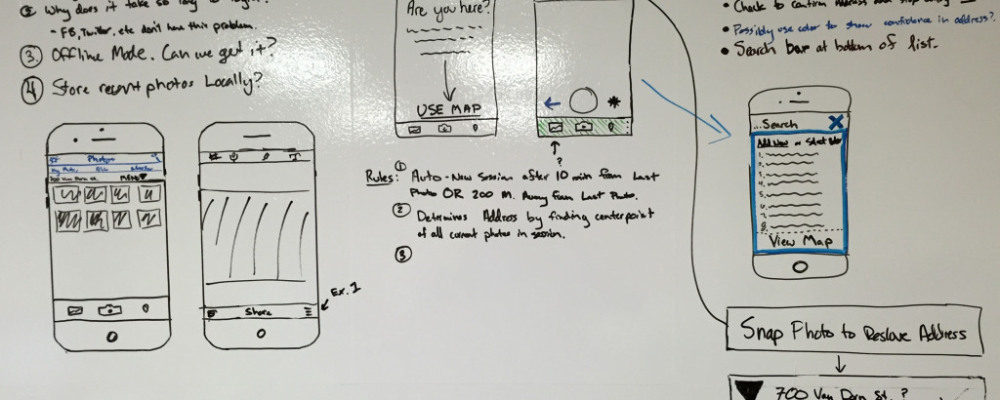 ② Why does it take so long to
- FB, Twitter, etc don't have this problem.
③ Offline Mode. Can we get it?
④ Store recent photos Locally?
Photos
More
Share
Ex. 1
Are you here?
USE MAP
?
Rules: ① Auto-New Session after 10 min from Last
Photo OR 200 M. Away from Last Photo.
② Determines Address by finding centerpoint
of all current photos in session.
③
• Check to confirm address
• Possibly use color to show confidence in address?
• Search bar at bottom of list.
...Search X
Add New or Select Below
1.
2.
3.
4.
5.
6.
7.
8.
View Map
Snap Photo to Reslove Address
700 Van Dorn St. ?